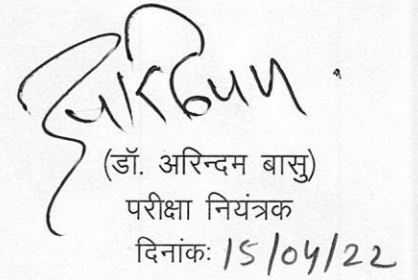 (डॉ. अरिन्दम बासु)
परीक्षा नियंत्रक
दिनांकः 15/04/22